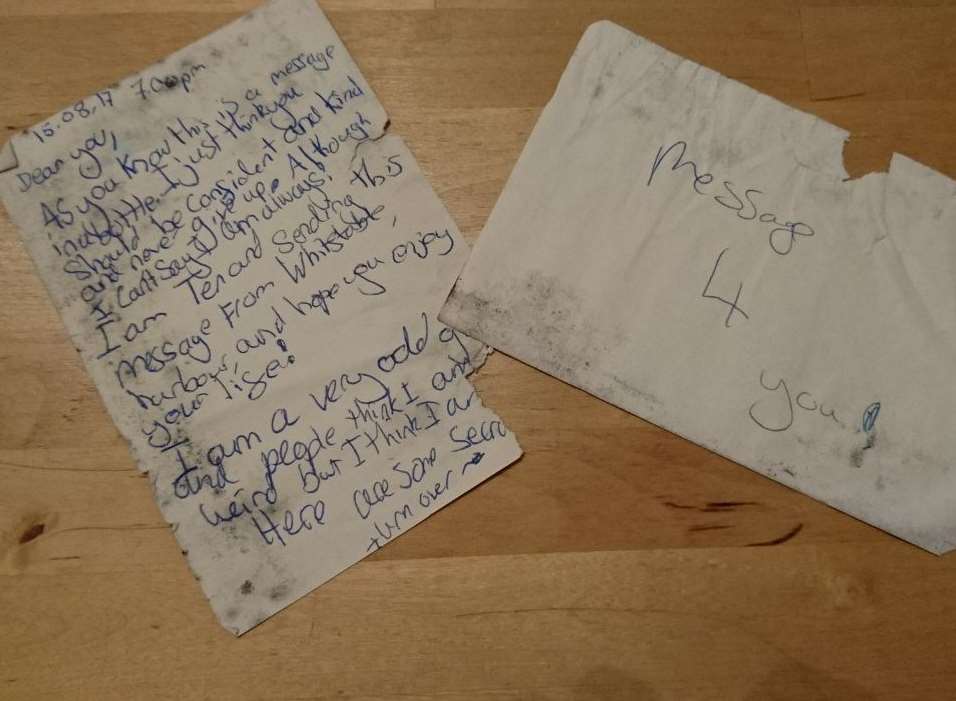 15.08.17 7:00pm
Dear you,
As you know this is a message
in a bottle. I just think you
should be confident and kind
and never give up. Although
I can't say I am always!
I am Ten and sending this
message from Whitstable
harbour and hope you enjoy
your life!
I am a very odd
and people think I am
weird but I think I am
Here are some
turn over
Message
4
you!